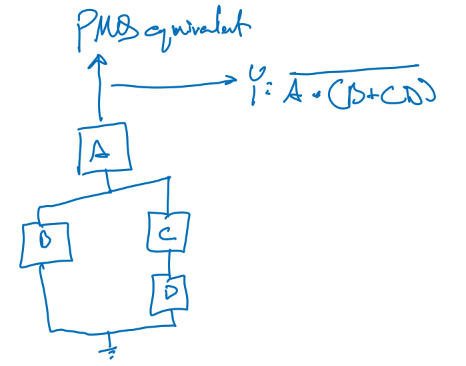 PMOS equivalent
Y = \overline{A \cdot (B+CD)}
A
B
C
D